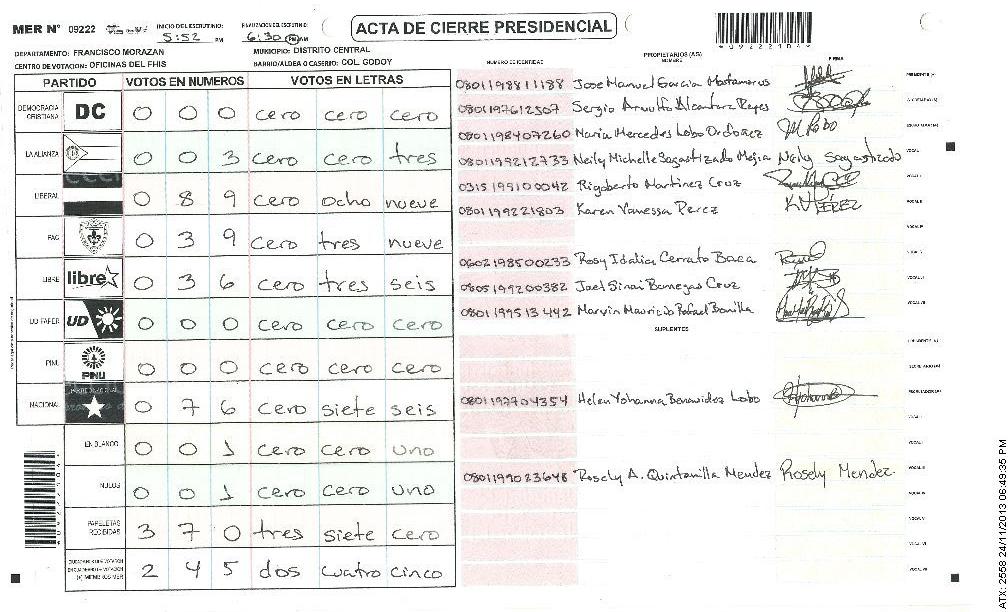 MER Nº 09222
INICIO DEL ESCRUTINIO:
5:52 PM
FINALIZACION DEL ESCRUTINIO:
6:30 PM AM
ACTA DE CIERRE PRESIDENCIAL
*09222104*
DEPARTAMENTO: FRANCISCO MORAZAN
MUNICIPIO: DISTRITO CENTRAL
CENTRO DE VOTACION: OFICINAS DEL FHIS
BARRIO/ALDEA O CASERIO: COL. GODOY
PARTIDO VOTOS EN NUMEROS VOTOS EN LETRAS
DEMOCRACIA CRISTIANA DC 0 0 0 cero cero cero
LA ALIANZA 0 0 3 cero cero tres
LIBERAL 0 8 9 cero ocho nueve
PAC 0 3 9 cero tres nueve
LIBRE libre 0 3 6 cero tres seis
UD FAPER UD 0 0 0 cero cero cero
PINU PINU 0 0 0 cero cero cero
NACIONAL 0 7 6 cero siete seis
EN BLANCO 0 0 1 cero cero uno
NULOS 0 0 1 cero cero uno
PAPELETAS RECIBIDAS 3 7 0 tres siete cero
(+) MIEMBROS MER 2 4 5 dos cuatro cinco
NUMERO DE IDENTIDAD
PROPIETARIOS (AS)
NOMBRE
FIRMA
0801198811188 Jose Manuel Garcia
0801197612507 Sergio Arnulfo Alcantara Reyes
0801198407260 Maria Mercedes Lobo Ordoñez M Lobo
0801199212733 Neily Michelle Sagastizado Mejia Neily Sagastizado
0315199100042 Rigoberto Martinez Cruz
0801199221803 Karen Vanessa Perez K.V PÉREZ
0602198500233 Rosy Idalia Cerrato Baca
0805199200382 Jael Sinai Banegas Cruz
0801199513442 Marvin Mauricio Rafael Bonilla
SUPLENTES
0801197704354 Helen Yohanna Benavidez Lobo
0801199023648 Rosely A. Quintanilla Mendez Rosely Mendez
ATX: 2558 24/11/2013 06:49:35 PM